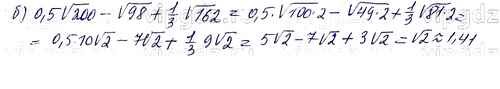 б) 0,5√200 - √98 + 1/3 √162 = 0,5·√100·2 - √49·2 + 1/3 √81·2 =
= 0,5·10√2 - 7√2 + 1/3 9√2 = 5√2 - 7√2 + 3√2 = √2 ≈ 1,41